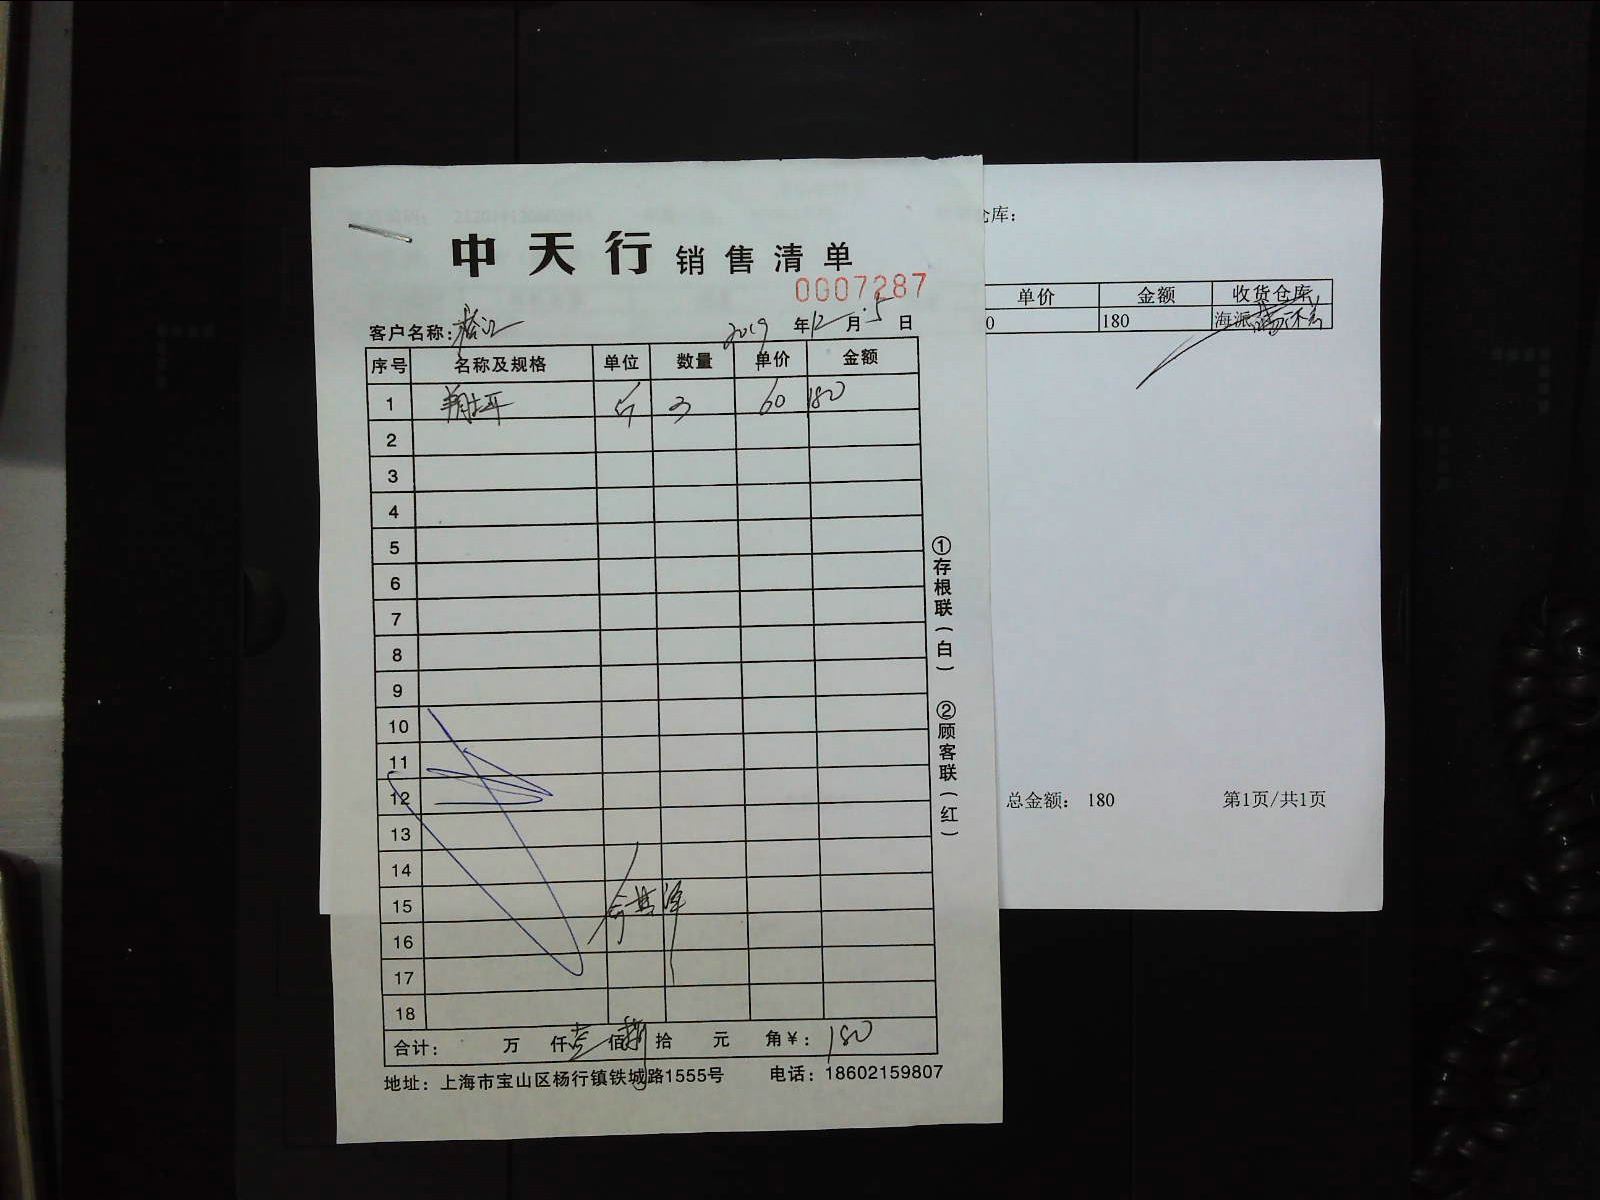 中天行 销售清单
0007287
客户名称：
2019 年 12 月 5 日
序号 名称及规格 单位 数量 单价 金额
1 3 60 180
2
3
4
5
6
7
8
9
10
11
12
13
14
15
16
17
18
合计： 万 仟 壹 佰 捌 拾 元 角 ¥： 180
地址：上海市宝山区杨行镇铁城路1555号 电话：18602159807
①存根联（白） ②顾客联（红）
仓库：
单价 金额 收货仓库
0 180 海派
总金额： 180 第1页/共1页